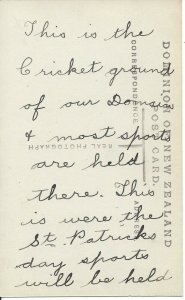 This is the
Cricket ground
of our Domain
& most sports
are held
there. This
is were the
St. Patricks
day sports
will be held
DOMINION OF NEW ZEALAND
POST CARD.
CORRESPONDENCE.
REAL PHOTOGRAPH